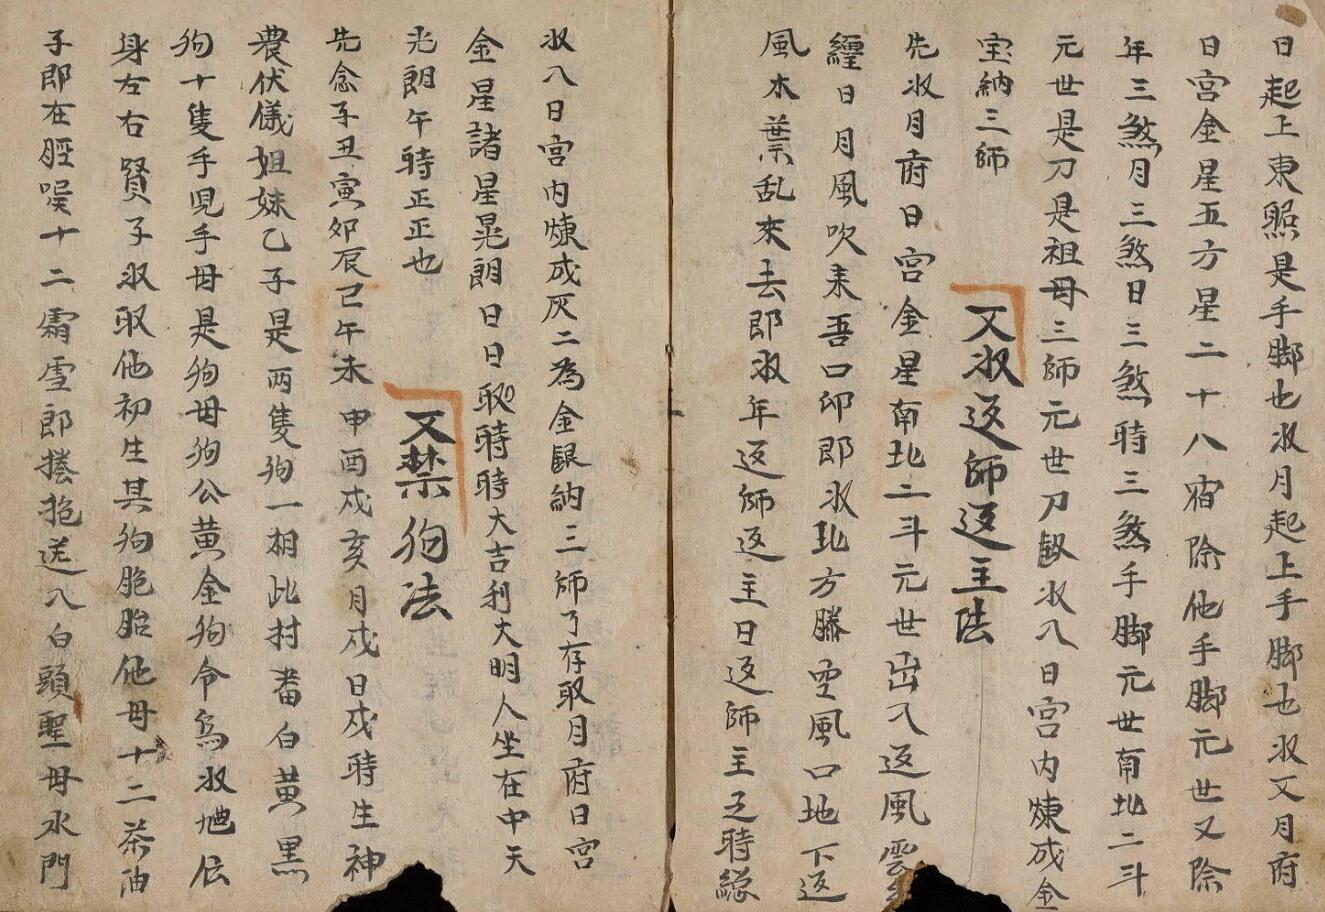 日起上東照是手脚也收月起上手脚也收又月府
日宮金星五方星二十八宿除他手脚元世又除
年三煞月三煞日三煞時三煞手脚元世南北二斗
元世是刀是祖母三師元世刀 收入日宮内煉成金
宝納三師
又收返師返主法
先收月府日宮金星南北二斗元世出入返風雲
經日月風吹来吾口印即收北方騰空風口地下返
風木葉乱來去即收年返師返主日返師主返時
收入日宮内煉成灰二為金銀納三師了存取月府日宮
金星諸星晃朗日日 時時大吉利大明人坐在中天
光朗午時正正也
又禁狗法
先念子丑寅卯辰巳午未申酉戍亥月戍日戍時生神
農伏儀姐妹乙子是両隻狗一相此村畨白黄黒
狗十隻手児手母是狗母狗公黄金狗令烏收 伝
身左右賢子收取他初生其狗胞胎他母十二茶油
子郎在脛 十二霜雪郎捲抱送入白頭聖母水門